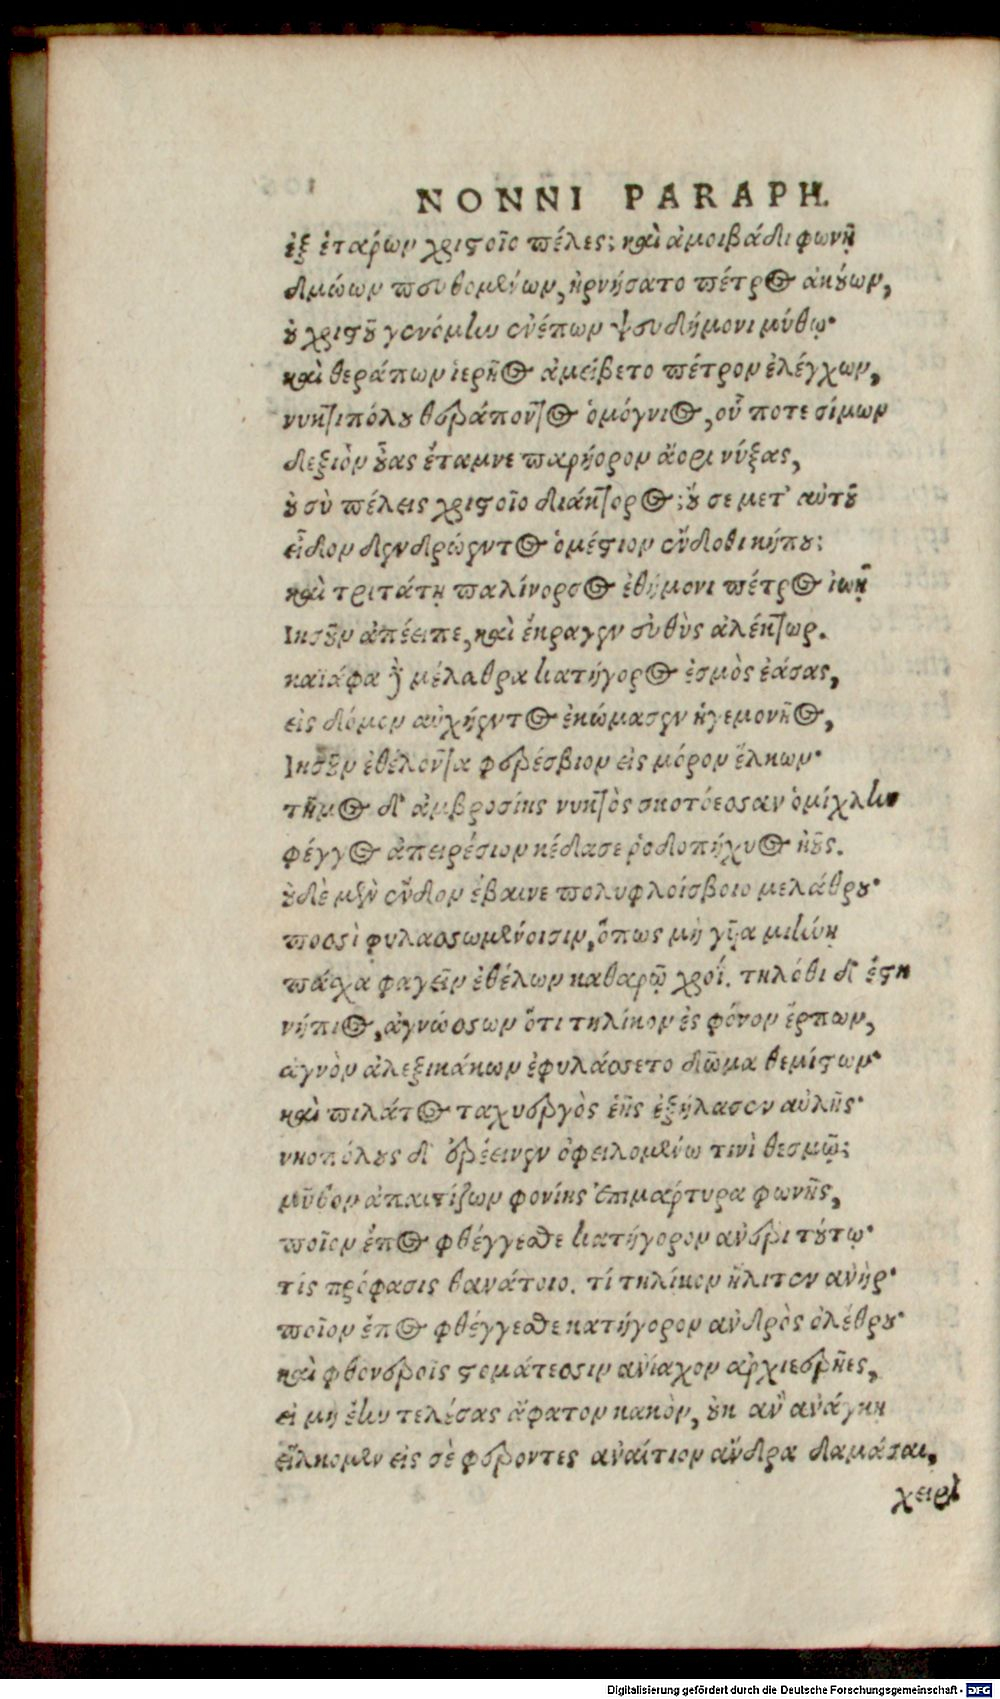 NONNI PARAPH.
ἐξ ἑτάρων χριστοῖο πέλες; καὶ ἀμοιβάδι φωνῇ
δμώων πευθομένων, ἠρνήσατο πέτρος ἀκούων,
οὐ χριστοῦ γενόμην ἐνέπων ψευδήμονι μύθῳ·
καὶ θεράπων ἱερῆος ἀμείβετο πέτρον ἐλέγχων,
νυκτιπόλου θεράποντος ὁμόγνιος, οὗ ποτε σίμων
δεξιὸν οὖας ἔταμνε παρήορον ἄορι νύξας,
οὐ σὺ πέλεις χριστοῖο διάκτορος; οὔ σε μετ' αὐτοῦ
εἶδον δενδρώεντος ὁμέστιον ἔνδοθι κήπου;
καὶ τριτάτῃ παλίνορσος ἐθήμονι πέτρος ἰωῇ
Ἰησοῦν ἀπέειπε, καὶ ἔκραγεν εὐθὺς ἀλέκτωρ.
καϊάφα δὲ μέλαθρα κατήγορος ἐσμὸς ἐάσας,
εἰς δόμον αὐχήεντος ἐκώμασεν ἡγεμονῆος,
Ἰησοῦν ἐθέλοντα φερέσβιον εἰς μόρον ἕλκων·
τῆμος δ' ἀμβροσίης νυκτὸς σκοτόεσσαν ὁμίχλην
φέγγος ἀπειρέσιον κέδασε ῥοδοπήχυος ἠοῦς.
οὐδὲ μὲν ἔνδον ἔβαινε πολυφλοίσβοιο μελάθρου·
ποσσὶ φυλασσωμένοισιν, ὅπως μὴ γυῖα μιήνῃ
πάσχα φαγεῖν ἐθέλων καθαρῷ χροΐ. τηλόθι δ' ἔστη
νήπιος, ἀγνώσσων ὅτι τηλίκον ἐς φόνον ἕρπων,
ἁγνὸν ἀλεξικάκων ἐφυλάσσετο δῶμα θεμίστων·
καὶ πιλάτος ταχυεργὸς ἑῆς ἐξήλασεν αὐλῆς·
νηοπόλους δ' ἐρέεινεν ὀφειλομένω τινὶ θεσμῷ;
μῦθον ἀπαιτίζων φονίης ἐπιμάρτυρα φωνῆς,
ποῖον ἔπος φθέγγεσθε κατήγορον ἀνέρι τούτῳ·
τίς πρόφασις θανάτοιο. τί τηλίκον ἤλιτεν ἀνήρ·
ποῖον ἔπος φθέγγεσθε κατήγορον ἀνδρὸς ὀλέθρου·
καὶ φθονεροῖς στομάτεσσιν ἀνίαχον ἀρχιερῆες,
εἰ μὴ ἔην τελέσας ἄφατον κακὸν, οὐκ ἂν ἀνάγκη
εἵλκομεν εἰς σὲ φέροντες ἀναίτιον ἄνδρα δαμάσαι,
χειρὶ
Digitalisierung gefördert durch die Deutsche Forschungsgemeinschaft - DFG